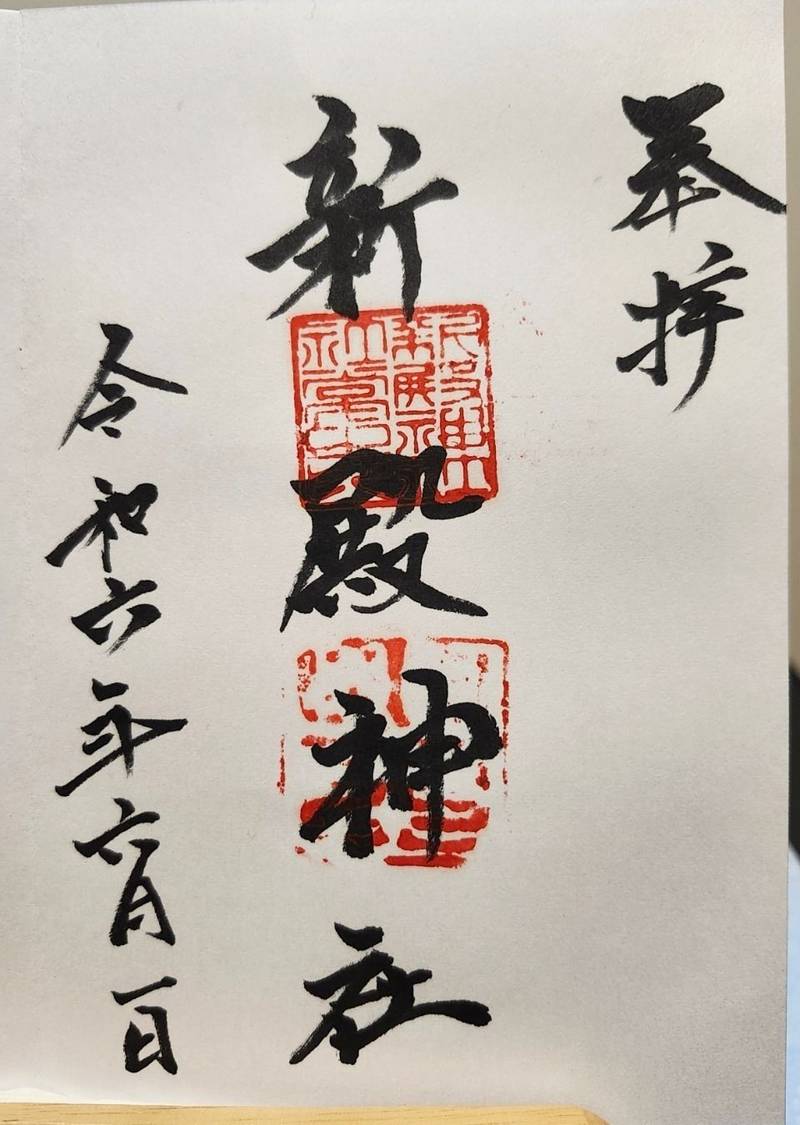 奉拝
新殿神社
令和六年六月一日